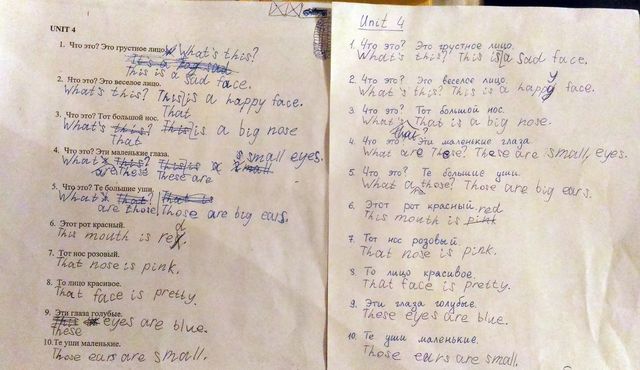 UNIT 4
1. Что это? Это грустное лицо. What's this?
It's a sad
This is a sad face.
2. Что это? Это веселое лицо.
What's this? This is a happy face.
3. Что это? Тот большой нос. That
What's this? This is a big nose
That
4. Что это? Эти маленькие глаза. small eyes.
What this? This is a small
are these These are
5. Что это? Те большие уши.
What that? That is
are those Those are big ears.
6. Этот рот красный.
This mouth is red
7. Тот нос розовый.
That nose is pink.
8. То лицо красивое.
That face is pretty.
9. Эти глаза голубые.
This eyes are blue.
These
10. Те уши маленькие.
Those ears are small.
Unit 4
1. Что это? Это грустное лицо.
What's this? This is a sad face.
2. Что это? Это веселое лицо.
What's this? This is a happy face.
3. Что это? Тот большой нос.
What's that? That is a big nose.
4. Что это? Эти маленькие глаза
What are These? These are small eyes.
5. Что это? Те большие уши.
What are those? Those are big ears.
6. Этот рот красный red
This mouth is pink
7. Тот нос розовый.
That nose is pink.
8. То лицо красивое.
That face is pretty.
9. Эти глаза голубые.
These eyes are blue.
10. Те уши маленькие.
Those ears are small.